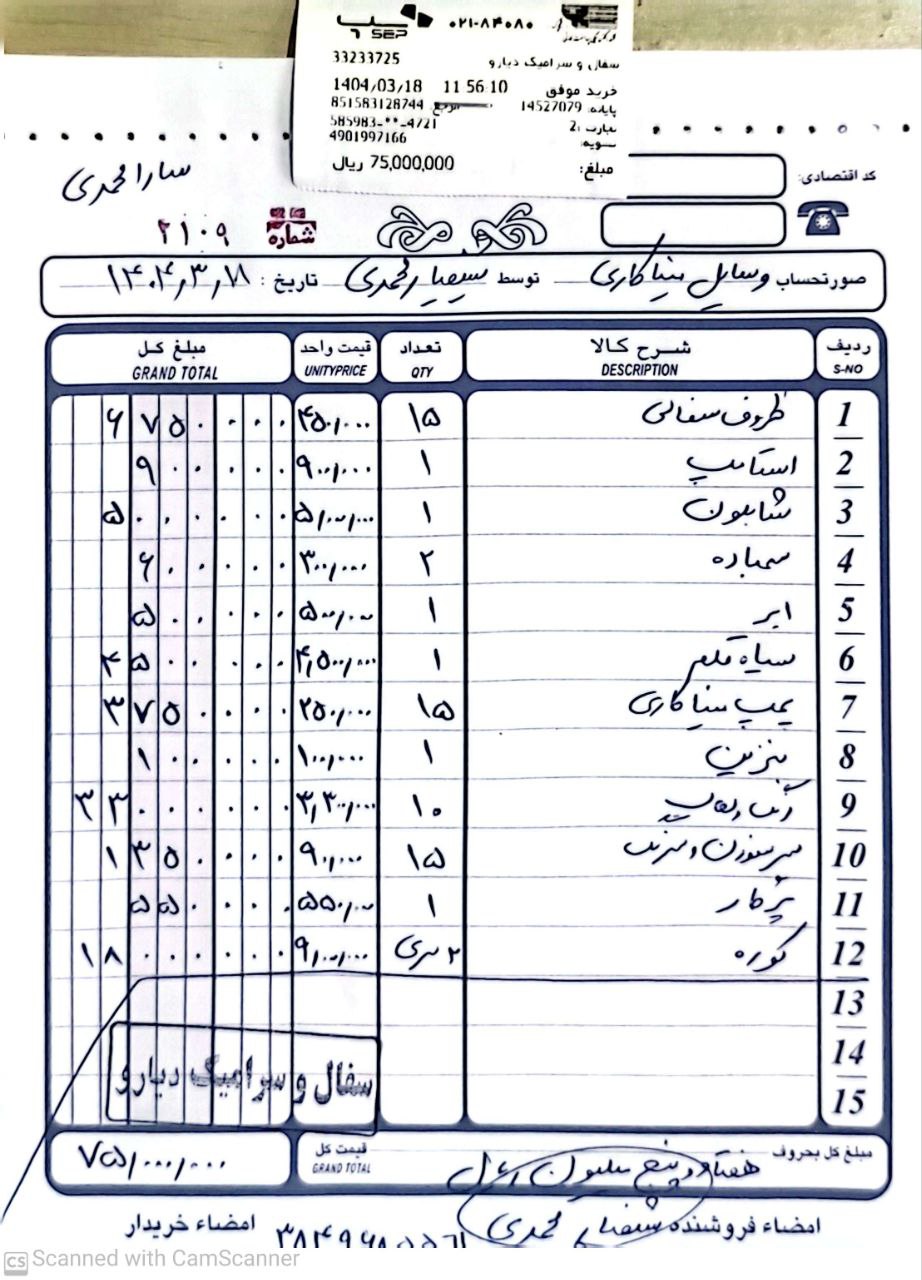 ۰۲۱-۸۴۰۸۰
سپ
SEP
سفال و سرامیک دیارو 33233725
خرید موفق 11:56:10 1404/03/18
پایانه: 14527079 851583128744
585983-**-4721
4901997166
مبلغ: 75,000,000 ریال
سارا محمدی
کد اقتصادی:
شماره ۲۱۰۹
صورتحساب وسایل میناکاری توسط تاریخ: ۱۴۰۴,۳,۱۸
ردیف شرح کالا تعداد قیمت واحد مبلغ کل
S-NO DESCRIPTION QTY UNITYPRICE GRAND TOTAL
1 ظروف سفالی ۱۵ ۴۵۰,۰۰۰ ۶۷۵۰۰۰۰
2 استامپ ۱ ۹۰۰,۰۰۰ ۹۰۰۰۰۰
3 شابلون ۱ ۵,۰۰۰,۰۰۰ ۵۰۰۰۰۰۰
4 سمباده ۲ ۳۰۰,۰۰۰ ۶۰۰۰۰۰
5 ابر ۱ ۵۰۰,۰۰۰ ۵۰۰۰۰۰
6 سیاه قلم ۱ ۴,۵۰۰,۰۰۰ ۴۵۰۰۰۰۰
7 پمپ میناکاری ۱۵ ۲۵۰,۰۰۰ ۳۷۵۰۰۰۰
8 بنزین ۱ ۱۰۰,۰۰۰ ۱۰۰۰۰۰
9 رنگ ۱۰ ۳,۳۰۰,۰۰۰ ۳۳۰۰۰۰۰۰
10 سرسوزن و سرنگ ۱۵ ۹۰,۰۰۰ ۱۳۵۰۰۰۰
11 پرگار ۱ ۵۵۰,۰۰۰ ۵۵۰۰۰۰
12 کوره ۲ سری ۹,۰۰۰,۰۰۰ ۱۸۰۰۰۰۰۰
13
14
15
سفال و سرامیک دیارو
مبلغ کل بحروف هفتاد و پنج میلیون ریال قیمت کل ۷۵,۰۰۰,۰۰۰
GRAND TOTAL
امضاء فروشنده محمدی امضاء خریدار
CS Scanned with CamScanner